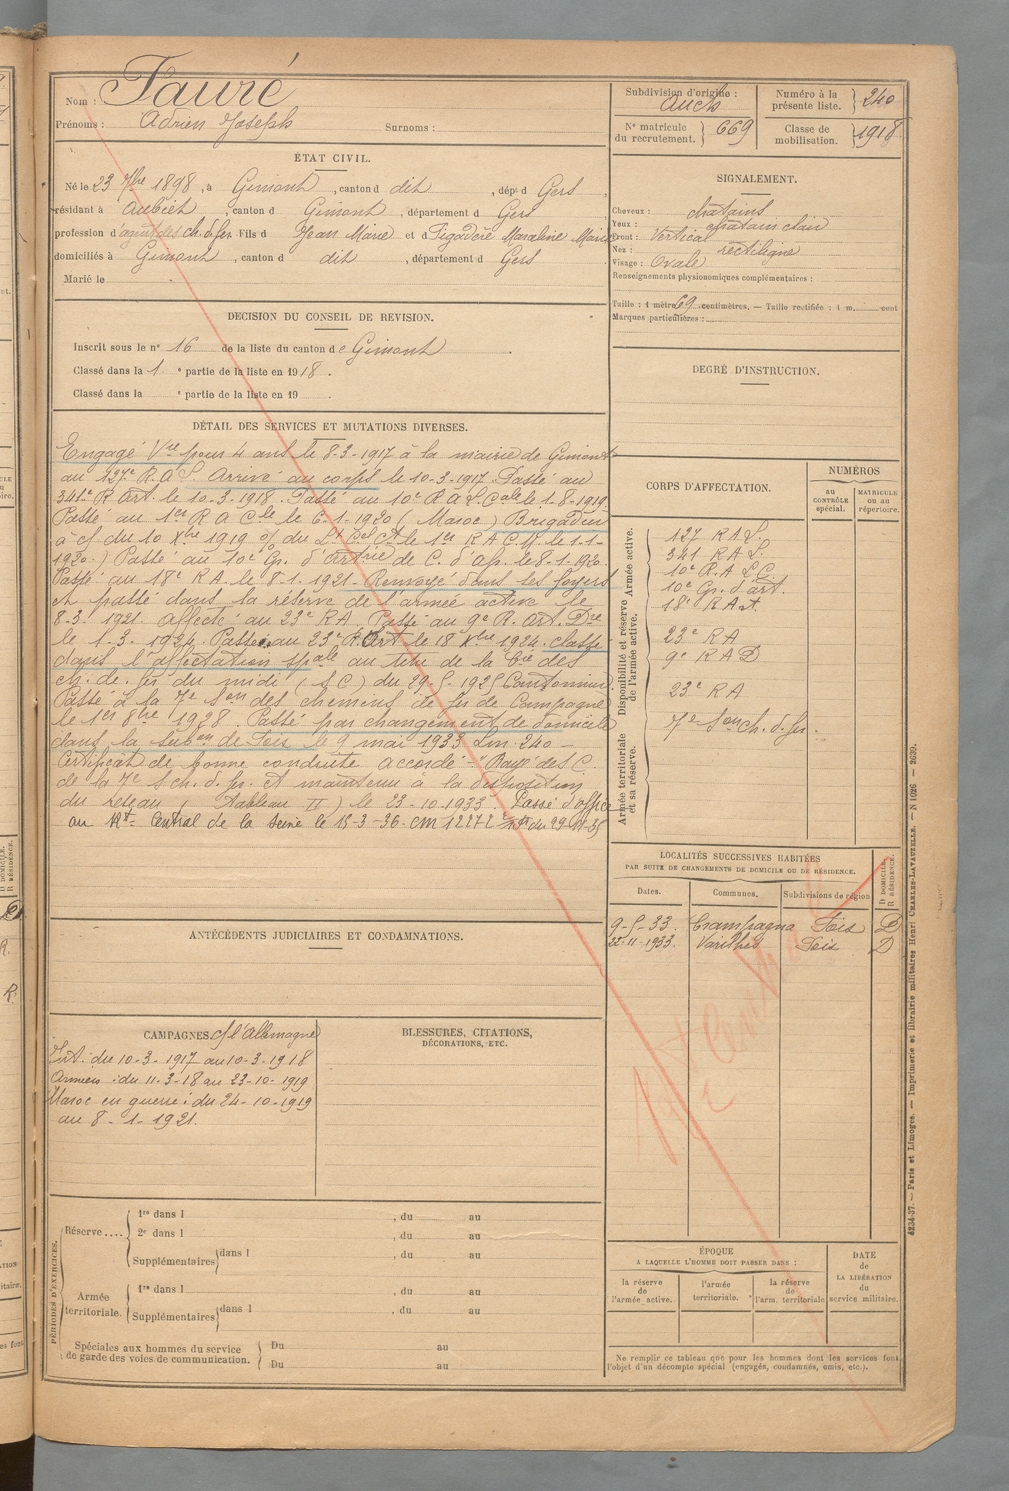 Nom : Fauré
Prénoms : Adrien Joseph Surnoms :
Subdivision d'origine : Auch
Numéro à la présente liste. 240
N° matricule du recrutement. 669
Classe de mobilisation. 1918
ÉTAT CIVIL.
Né le 23 7bre 1898, à Gimont, canton d dit, dép. d Gers,
résidant à Aubiet, canton d Gimont, département d Gers
profession d'agent des ch. d. fer. Fils d Jean Marie et d
domiciliés à Gimont, canton d dit, département d Gers
Marié le
SIGNALEMENT.
Cheveux : chatains
Yeux : chatain clair
Front : Vertical
Nez : rectiligne
Visage : Ovale
Renseignements physionomiques complémentaires :
Taille : 1 mètre 69 centimètres. — Taille rectifiée : 1 m. cent
Marques particulières :
DECISION DU CONSEIL DE REVISION.
Inscrit sous le n° 16 de la liste du canton de Gimont.
Classé dans la 1e partie de la liste en 1918.
Classé dans la e partie de la liste en 19
DEGRÉ D'INSTRUCTION.
DÉTAIL DES SERVICES ET MUTATIONS DIVERSES.
Engagé Vre pour 4 ans le 8-3-1917 à la mairie de Gimont
au 127e R.A.L. Arrivé au corps le 10-3-1917. Passé au
341e R. Art. le 10-3-1918. Passé au 10e R.A.L. Cale le 1-8-1919
Passé au 1er R A C le le 6-1-1920 (Maroc) Brigadier
à cf du 10 Xbre 1919 o/ du Lt Cel Ct le 1er R A C M. le 1-1-
1920.) Passé au 10e Gr. d'artrie de C. d'af. le 8-1-1920.
Passé au 18e R A. le 8-1-1921. Renvoyé dans ses foyers
et passé dans la réserve de l'armée active le
8-3-1921. affecté au 23e R A. Passé au 9e R. Art. Dre
le 1-3-1924. Passé au 23e R. Art le 18 Xbre 1924. classé
dans l'affectation spale au titre de la Cie des
ch. de fer du midi (S C) du 29-5-1925 Cantonnier.
Passé à la 7e Son des chemins de fer de Campagne
le 1er 8bre 1928. Passé par changement de domicile
dans la subon de Foix le 9 mai 1933. Lm. 240 -
Certificat de bonne conduite accordé - Rayé des C.
de la 7e S ch. d. fr. et maintenu à la disposition
du réseau (Tableau II) le 23-10-1933. Passé d'office
au Rt Central de la Seine le 15-3-36.
CORPS D'AFFECTATION.
NUMÉROS
au CONTRÔLE spécial.
MATRICULE ou au répertoire.
Armée active.
127 R A L.
341 R A L.
10e R. A L C
10e Gr. d'art.
18e R A
Disponibilité et réserve de l'armée active.
23e R A
9e R A D
23e R A
7e Son ch. d. fer.
Armée territoriale et sa réserve.
LOCALITÉS SUCCESSIVES HABITÉES
PAR SUITE DE CHANGEMENTS DE DOMICILE OU DE RÉSIDENCE.
D DOMICILE. R RÉSIDENCE.
Dates. Communes. Subdivisions de région
9-5-33. Crampagna Foix D
22-11-1933. Varilhes Foix D
ANTÉCÉDENTS JUDICIAIRES ET CONDAMNATIONS.
CAMPAGNES c/ l'Allemagne
Int. du 10-3-1917 au 10-3-1918
Armées : du 11-3-18 au 23-10-1919
Maroc en guerre : du 24-10-1919
au 8-1-1921.
BLESSURES, CITATIONS,
DÉCORATIONS, ETC.
PÉRIODES D'EXERCICES.
Réserve....
1re dans l , du au
2e dans l , du au
Supplémentaires dans l , du au
Armée territoriale.
1re dans l , du au
Supplémentaires dans l , du au
Spéciales aux hommes du service
de garde des voies de communication.
Du au
Du au
ÉPOQUE
A LAQUELLE L'HOMME DOIT PASSER DANS :
la réserve de l'armée active.
l'armée territoriale.
la réserve de l'arm. territoriale
DATE de LA LIBÉRATION du service militaire.
Ne remplir ce tableau que pour les hommes dont les services font
l'objet d'un décompte spécial (engagés, condamnés, omis, etc.).
4234-37. — Paris et Limoges. — Imprimerie et librairie militaires Henri CHARLES-LAVAUZELLE. — N 1026 — 2639.